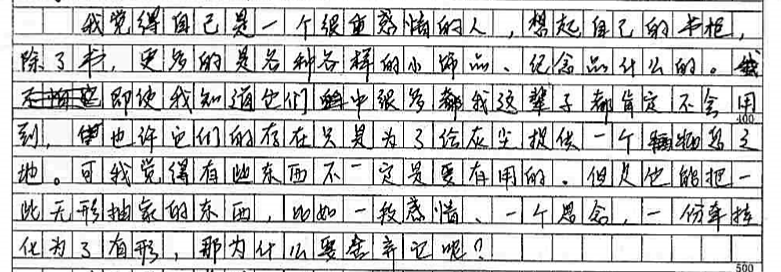 我觉得自己是一个很重感情的人，想起自己的书柜，
除了书，更多的是各种各样的小饰品、纪念品什么的。
即使我知道它们中很多都我这辈子都肯定不会用
400
到，也许它们的存在只是为了给灰尘提供一个栖息之
地。可我觉得有些东西不一定是要有用的。但凡他能把一
些无形抽象的东西，比如一段感情、一个思念，一份牵挂
化为了有形，那为什么要舍弃它呢？
500